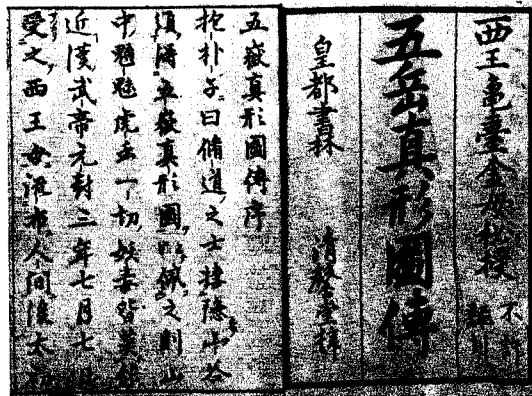 西王亀臺金母秘授
不許
五岳真形圖傳
皇都書林 清馨堂梓
五嶽真形圖傳序
抱朴子曰脩道之士棲隱山谷
須得五嶽真形圖佩之則山
中魑魅虎虫一切妖毒皆莫能
近漢武帝元封三年七月七
受之西王母流布人間後太初